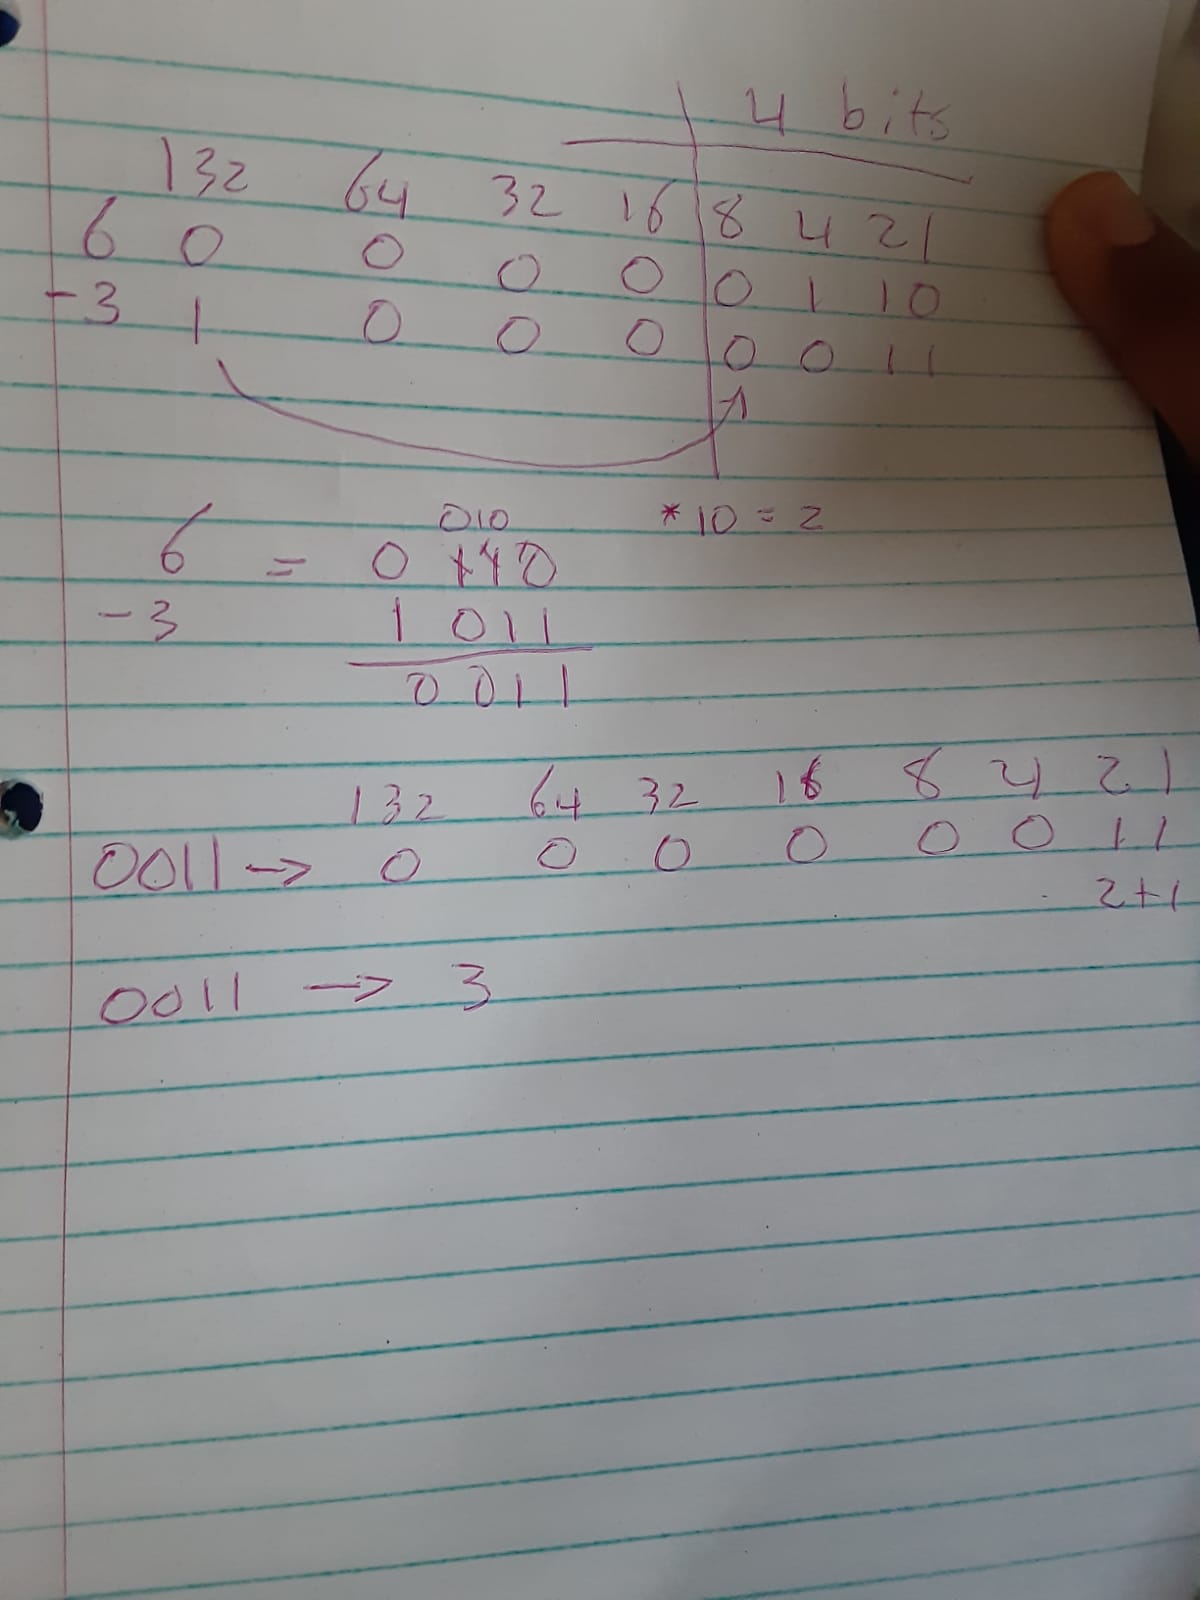 4 bits
132 64 32 16 8 4 2 1
6 0 0 0 0 0 1 1 0
-3 1 0 0 0 0 0 1 1
010 * 10 = 2
6 = 0 110
-3 1 011
0 011
132 64 32 16 8 4 2 1
0011 -> 0 0 0 0 0 0 1 1
2+1
0011 -> 3